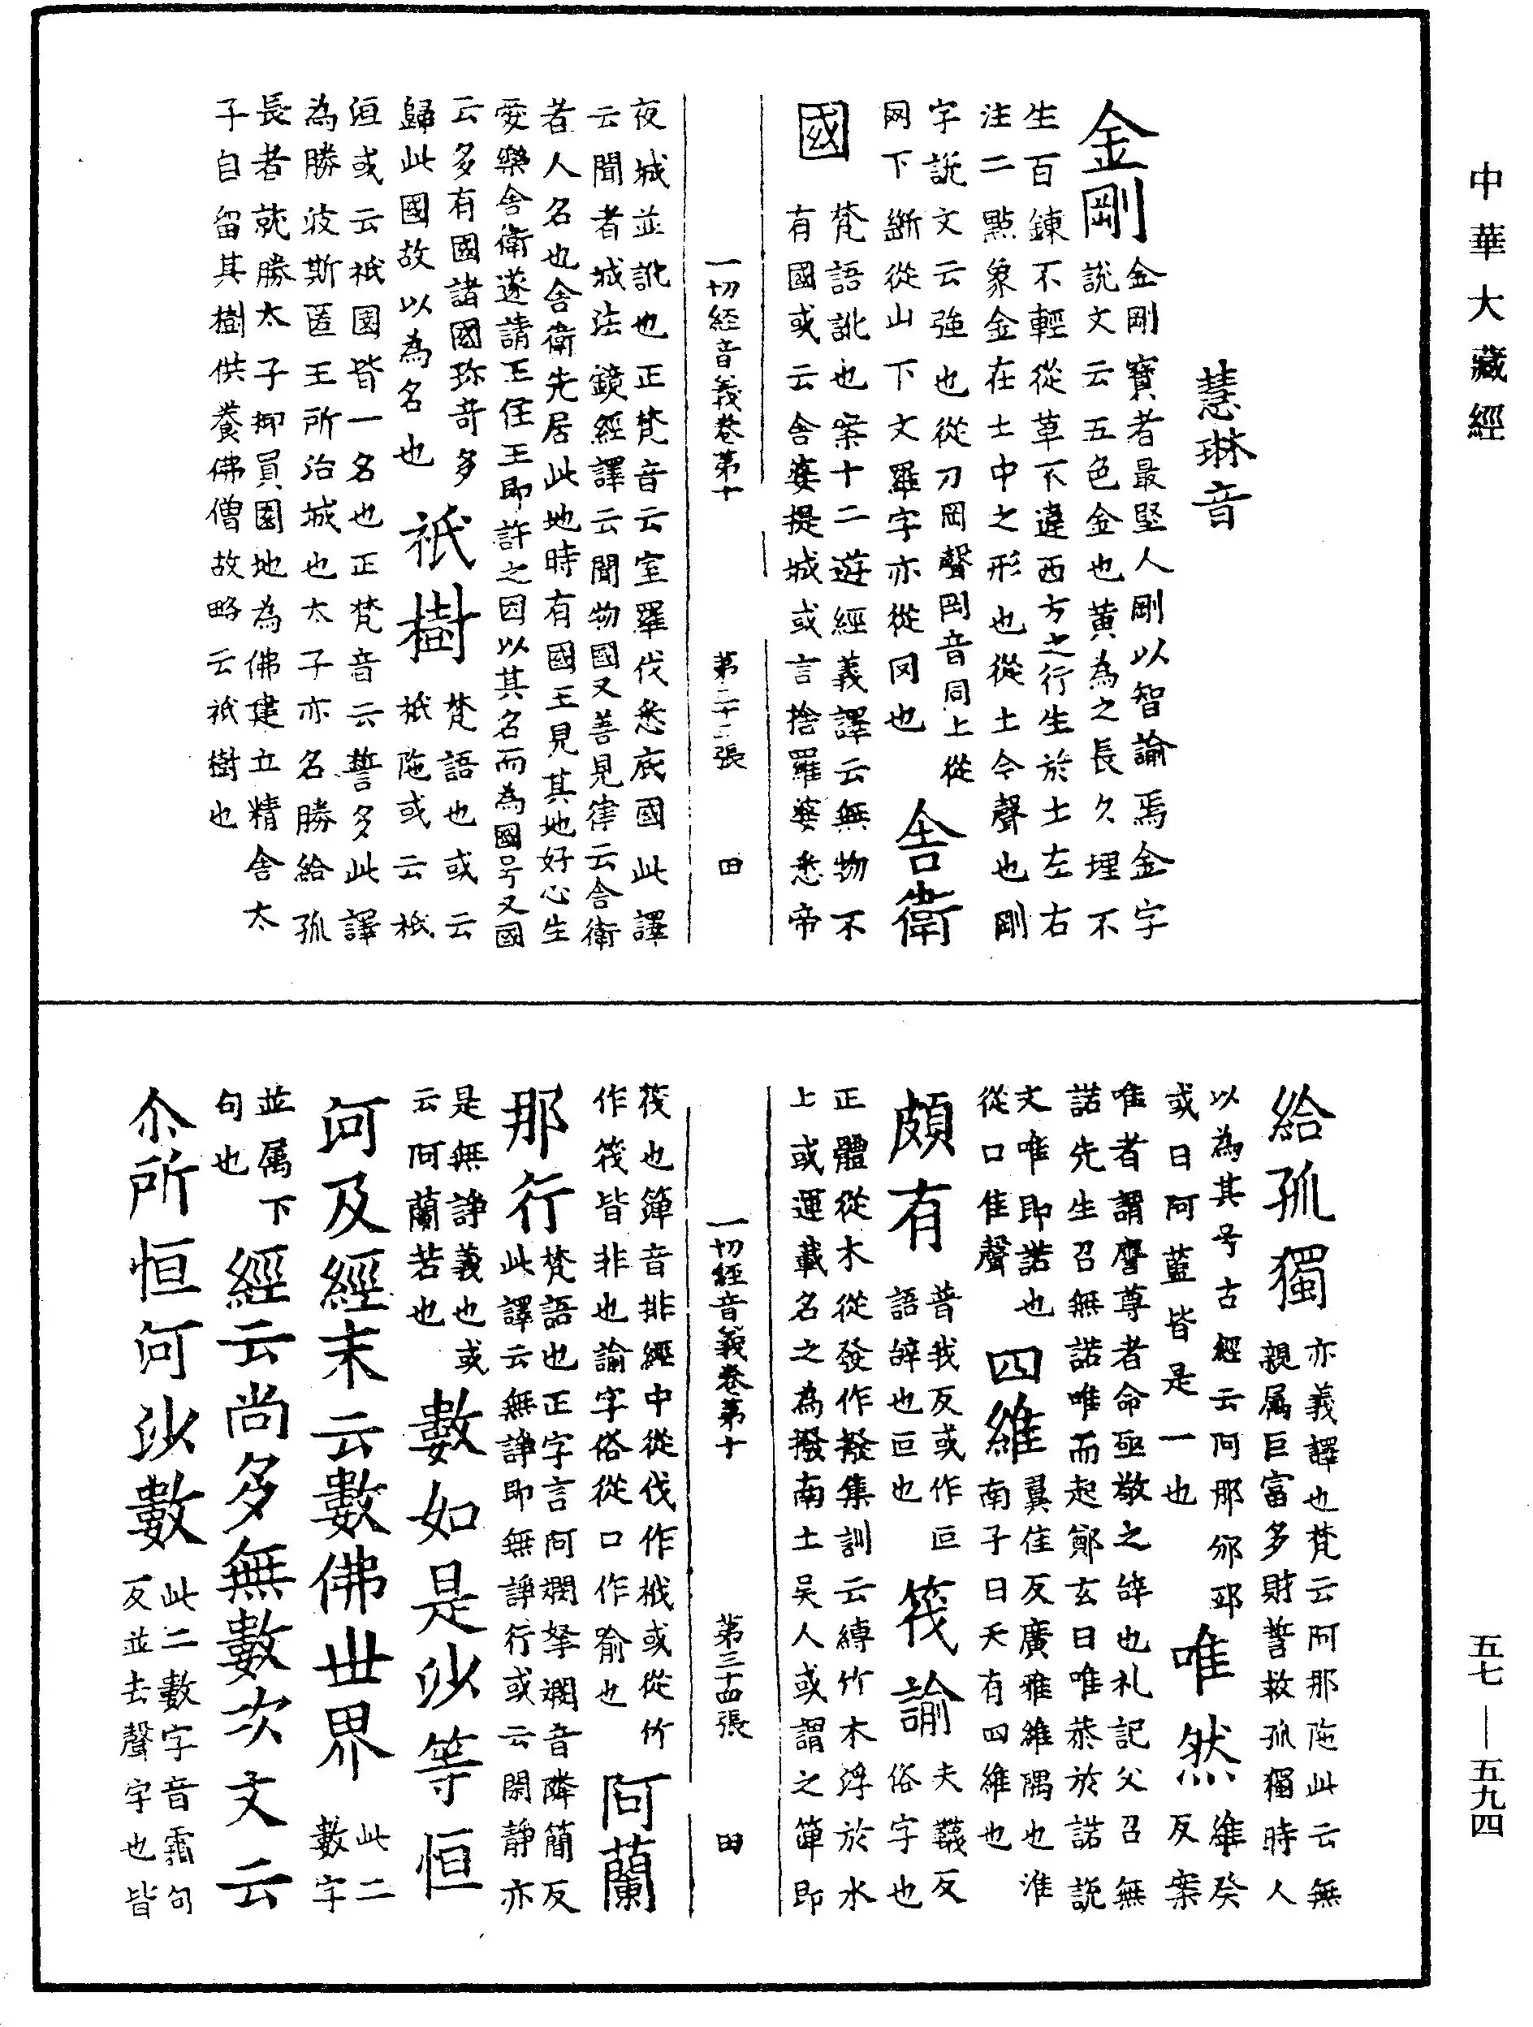 中華大藏經
五七—五九四
慧琳音
金剛 金剛寶者最堅人剛以智諭焉金字
說文云五色金也黃為之長久埋不
生百鍊不輕從革不違西方之行生於土左右
注二點象金在土中之形也從土今聲也剛
字說文云強也從刀岡聲岡音同上從
网下斷從山下文羅字亦從网也 舍衛
國 梵語訛也案十二遊經義譯云無物不
有國或云舍婆提城或言捨羅婆悉帝
一切經音義卷第十 第三十三張 田
夜城並訛也正梵音云室羅伐悉底國此譯
云聞者城法鏡經譯云聞物國又善見律云舍衛
者人名也舍衛先居此地時有國王見其地好心生
愛樂舍衛遂請王住王即許之因以其名而為國号又國
云多有國諸國珎竒多
歸此國故以為名也 祇樹 梵語也或云
祇陁或云祇
洹或云祇園皆一名也正梵音云誓多此譯
為勝波斯匿王所治城也太子亦名勝給孤
長者就勝太子抑員園地為佛建立精舍太
子自留其樹供養佛僧故略云祇樹也
給孤獨 亦義譯也梵云阿那陁此云無
親属巨富多財誓救孤獨時人
以為其号古經云阿那邠邸
或曰阿藍皆是一也 唯然 維癸
反案
唯者謂膺尊者命亟敬之辝也礼記父召無
諾先生召無諾唯而起鄭玄曰唯恭於諾說
文唯即諾也
從口隹聲 四維 翼隹反廣雅維隅也淮
南子曰天有四維也
頗有 普我反或作叵
語辝也叵也 筏諭 夫韈反
俗字也
正體從木從發作橃集訓云縛竹木浮於水
上或運載名之為撥南土吳人或謂之箄即
一切經音義卷第十 第三十四張 田
筏也箄音排經中從伐作栰或從竹
作筏皆非也諭字俗從口作喻也 阿蘭
那行 梵語也正字言阿㶕拏㶕音降簡反
此譯云無諍即無諍行或云閑靜亦
是無諍義也或
云阿蘭若也 數如是沙等恒
河及經末云數佛世界 此二
數字
並属下
句也 經云尚多無數次文云
尒所恒河沙數 此二數字音霜句
反並去聲字也皆